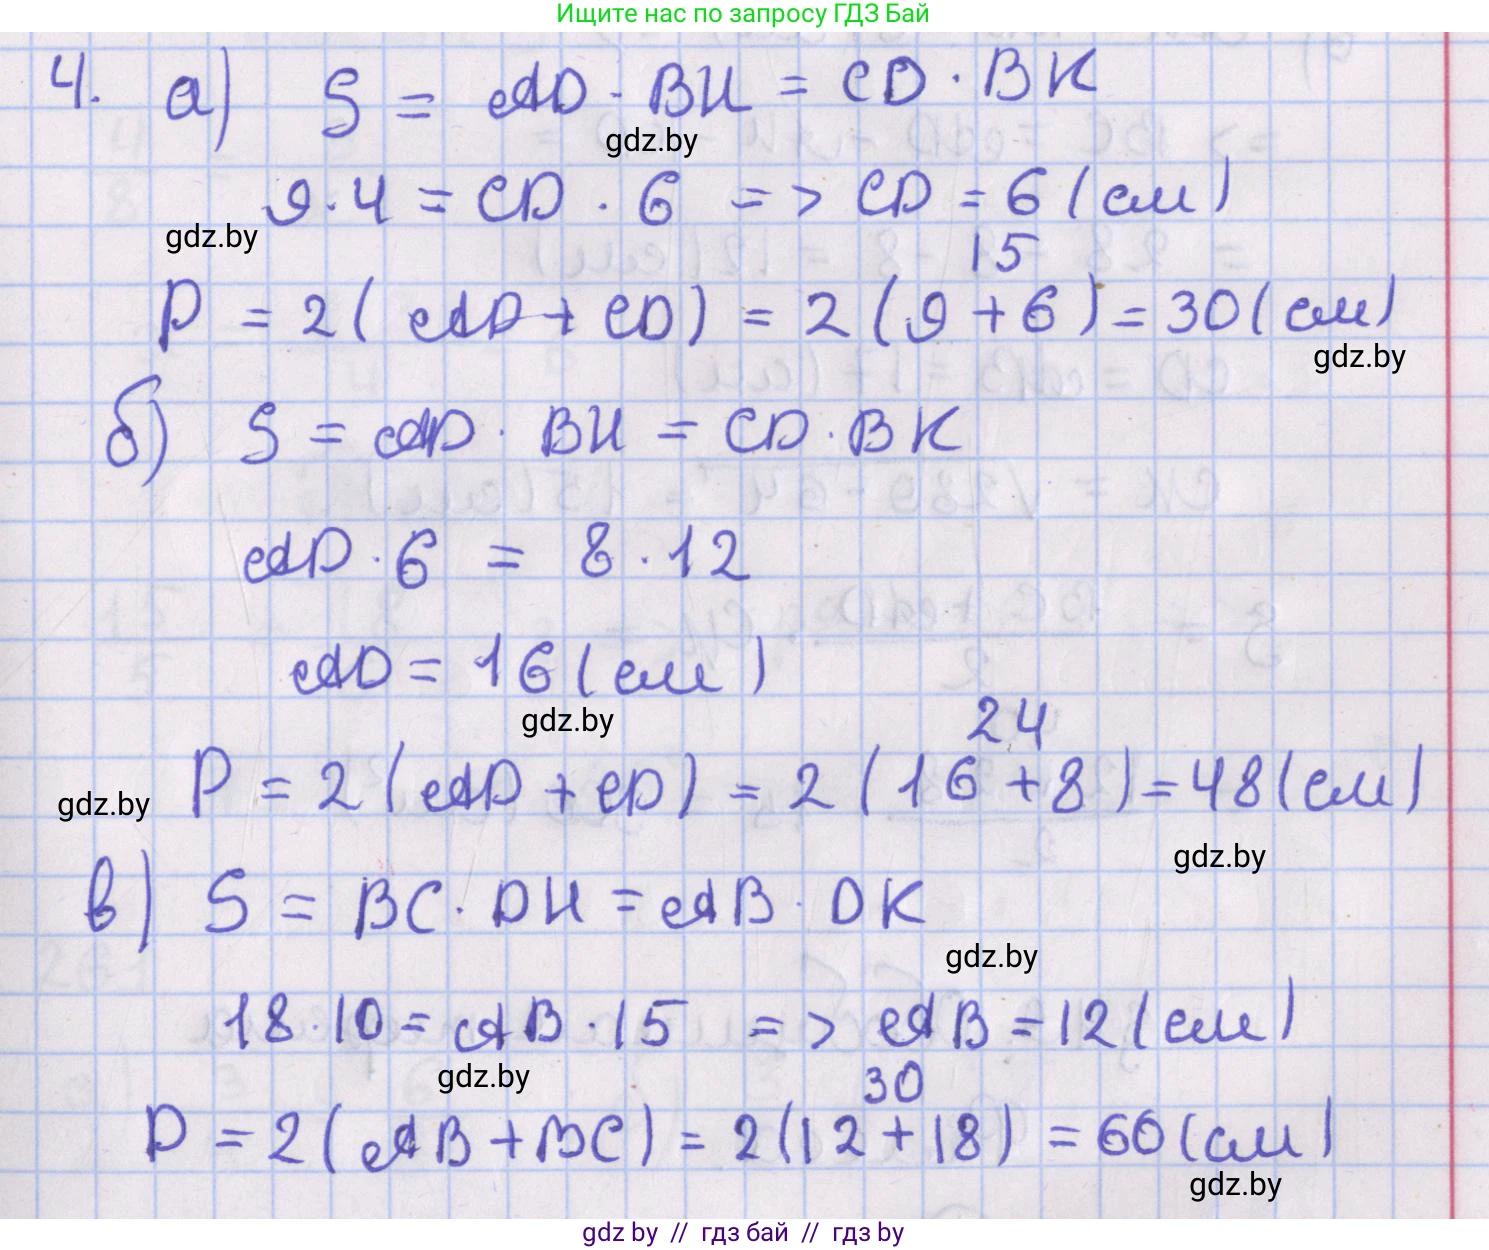 Ищите нас по запросу ГДЗ Бай
4. а) S = AD · BH = CD · BK
gdz.by
9·4 = CD · 6 => CD = 6 (см)
gdz.by
15
P = 2( AD + CD) = 2 (9 + 6) = 30 (см)
gdz.by
б) S = AD · BH = CD · BK
AD · 6 = 8 · 12
AD = 16 (см)
gdz.by
24
P = 2 (AD + CD) = 2 (16 + 8) = 48 (см)
gdz.by
gdz.by
в) S = BC · DH = AB · DK
gdz.by
18·10 = AB · 15 => AB = 12 (см)
gdz.by
30
P = 2 (AB + BC) = 2 (12 + 18) = 60 (см)
gdz.by
gdz by // гдз бай // гдз by